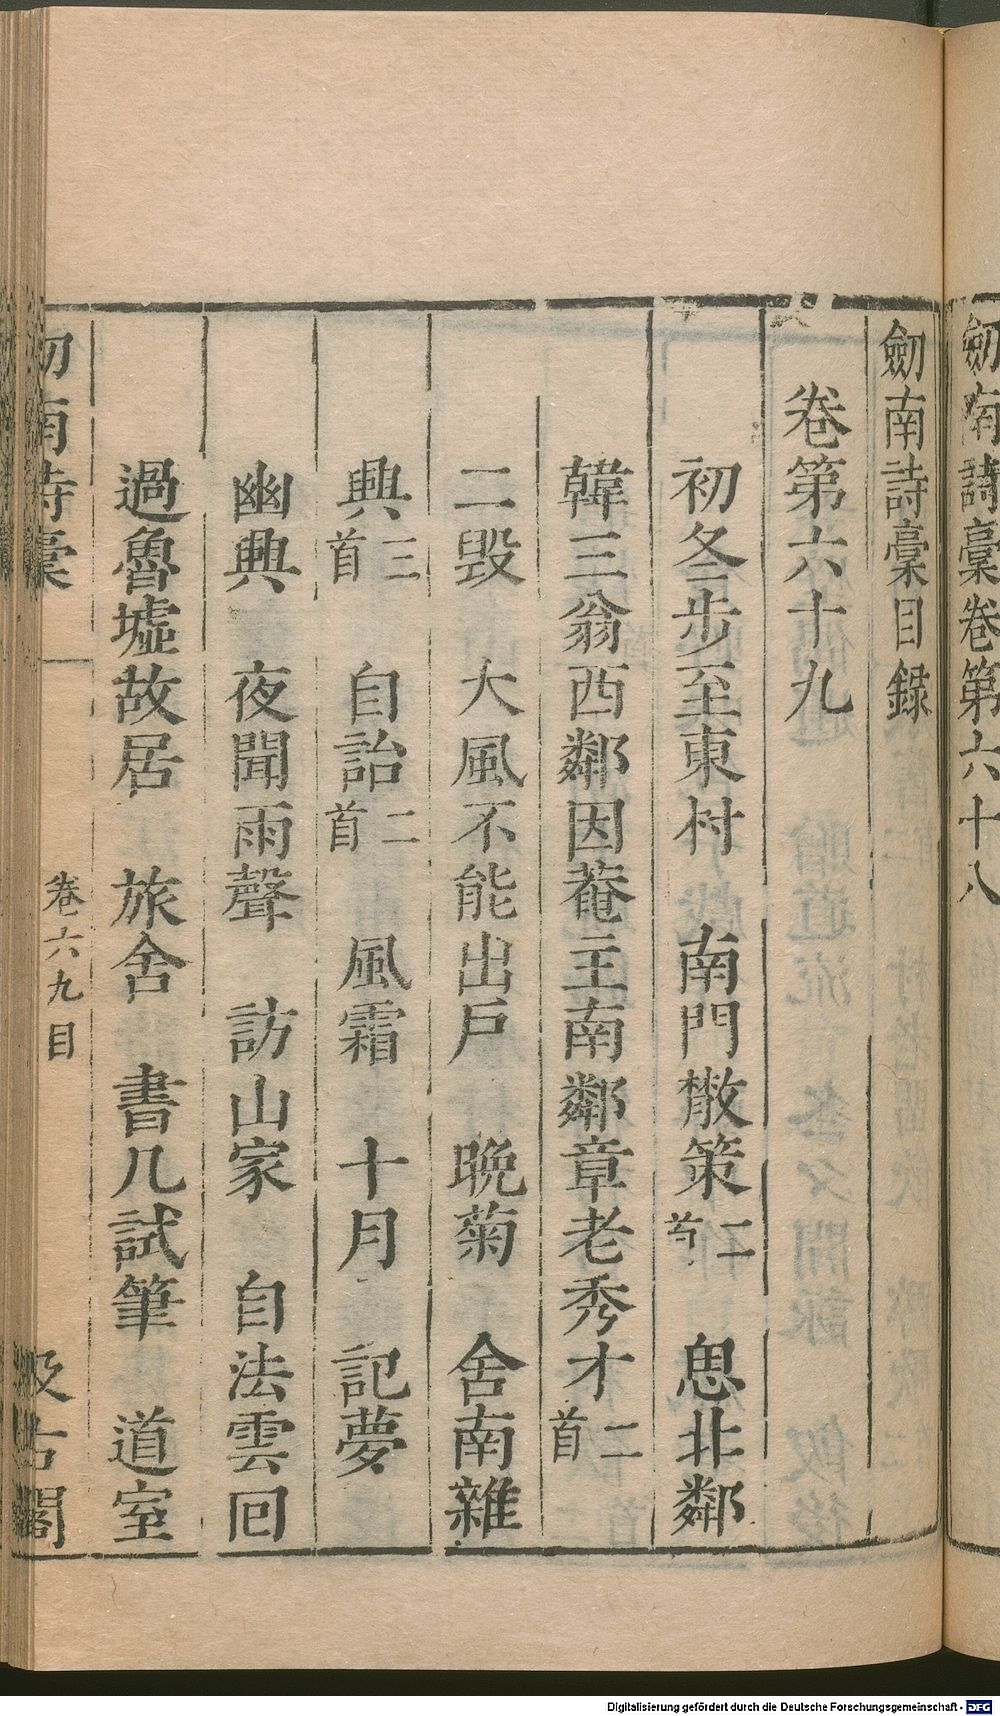 劒南詩藁卷第六十八
劒南詩藁目録
卷第六十九
初冬步至東村 南門散策二首 思北鄰
韓三翁西鄰因菴主南鄰章老秀才二首
二毀 大風不能出戶 晚菊 舍南雜
興三首 自詒二首 風霜 十月 記夢
幽興 夜聞雨聲 訪山家 自法雲回
過魯墟故居 旅舍 書几試筆 道室
劒南詩藁 卷六九目 汲古閣
Digitalisierung gefördert durch die Deutsche Forschungsgemeinschaft - DFG